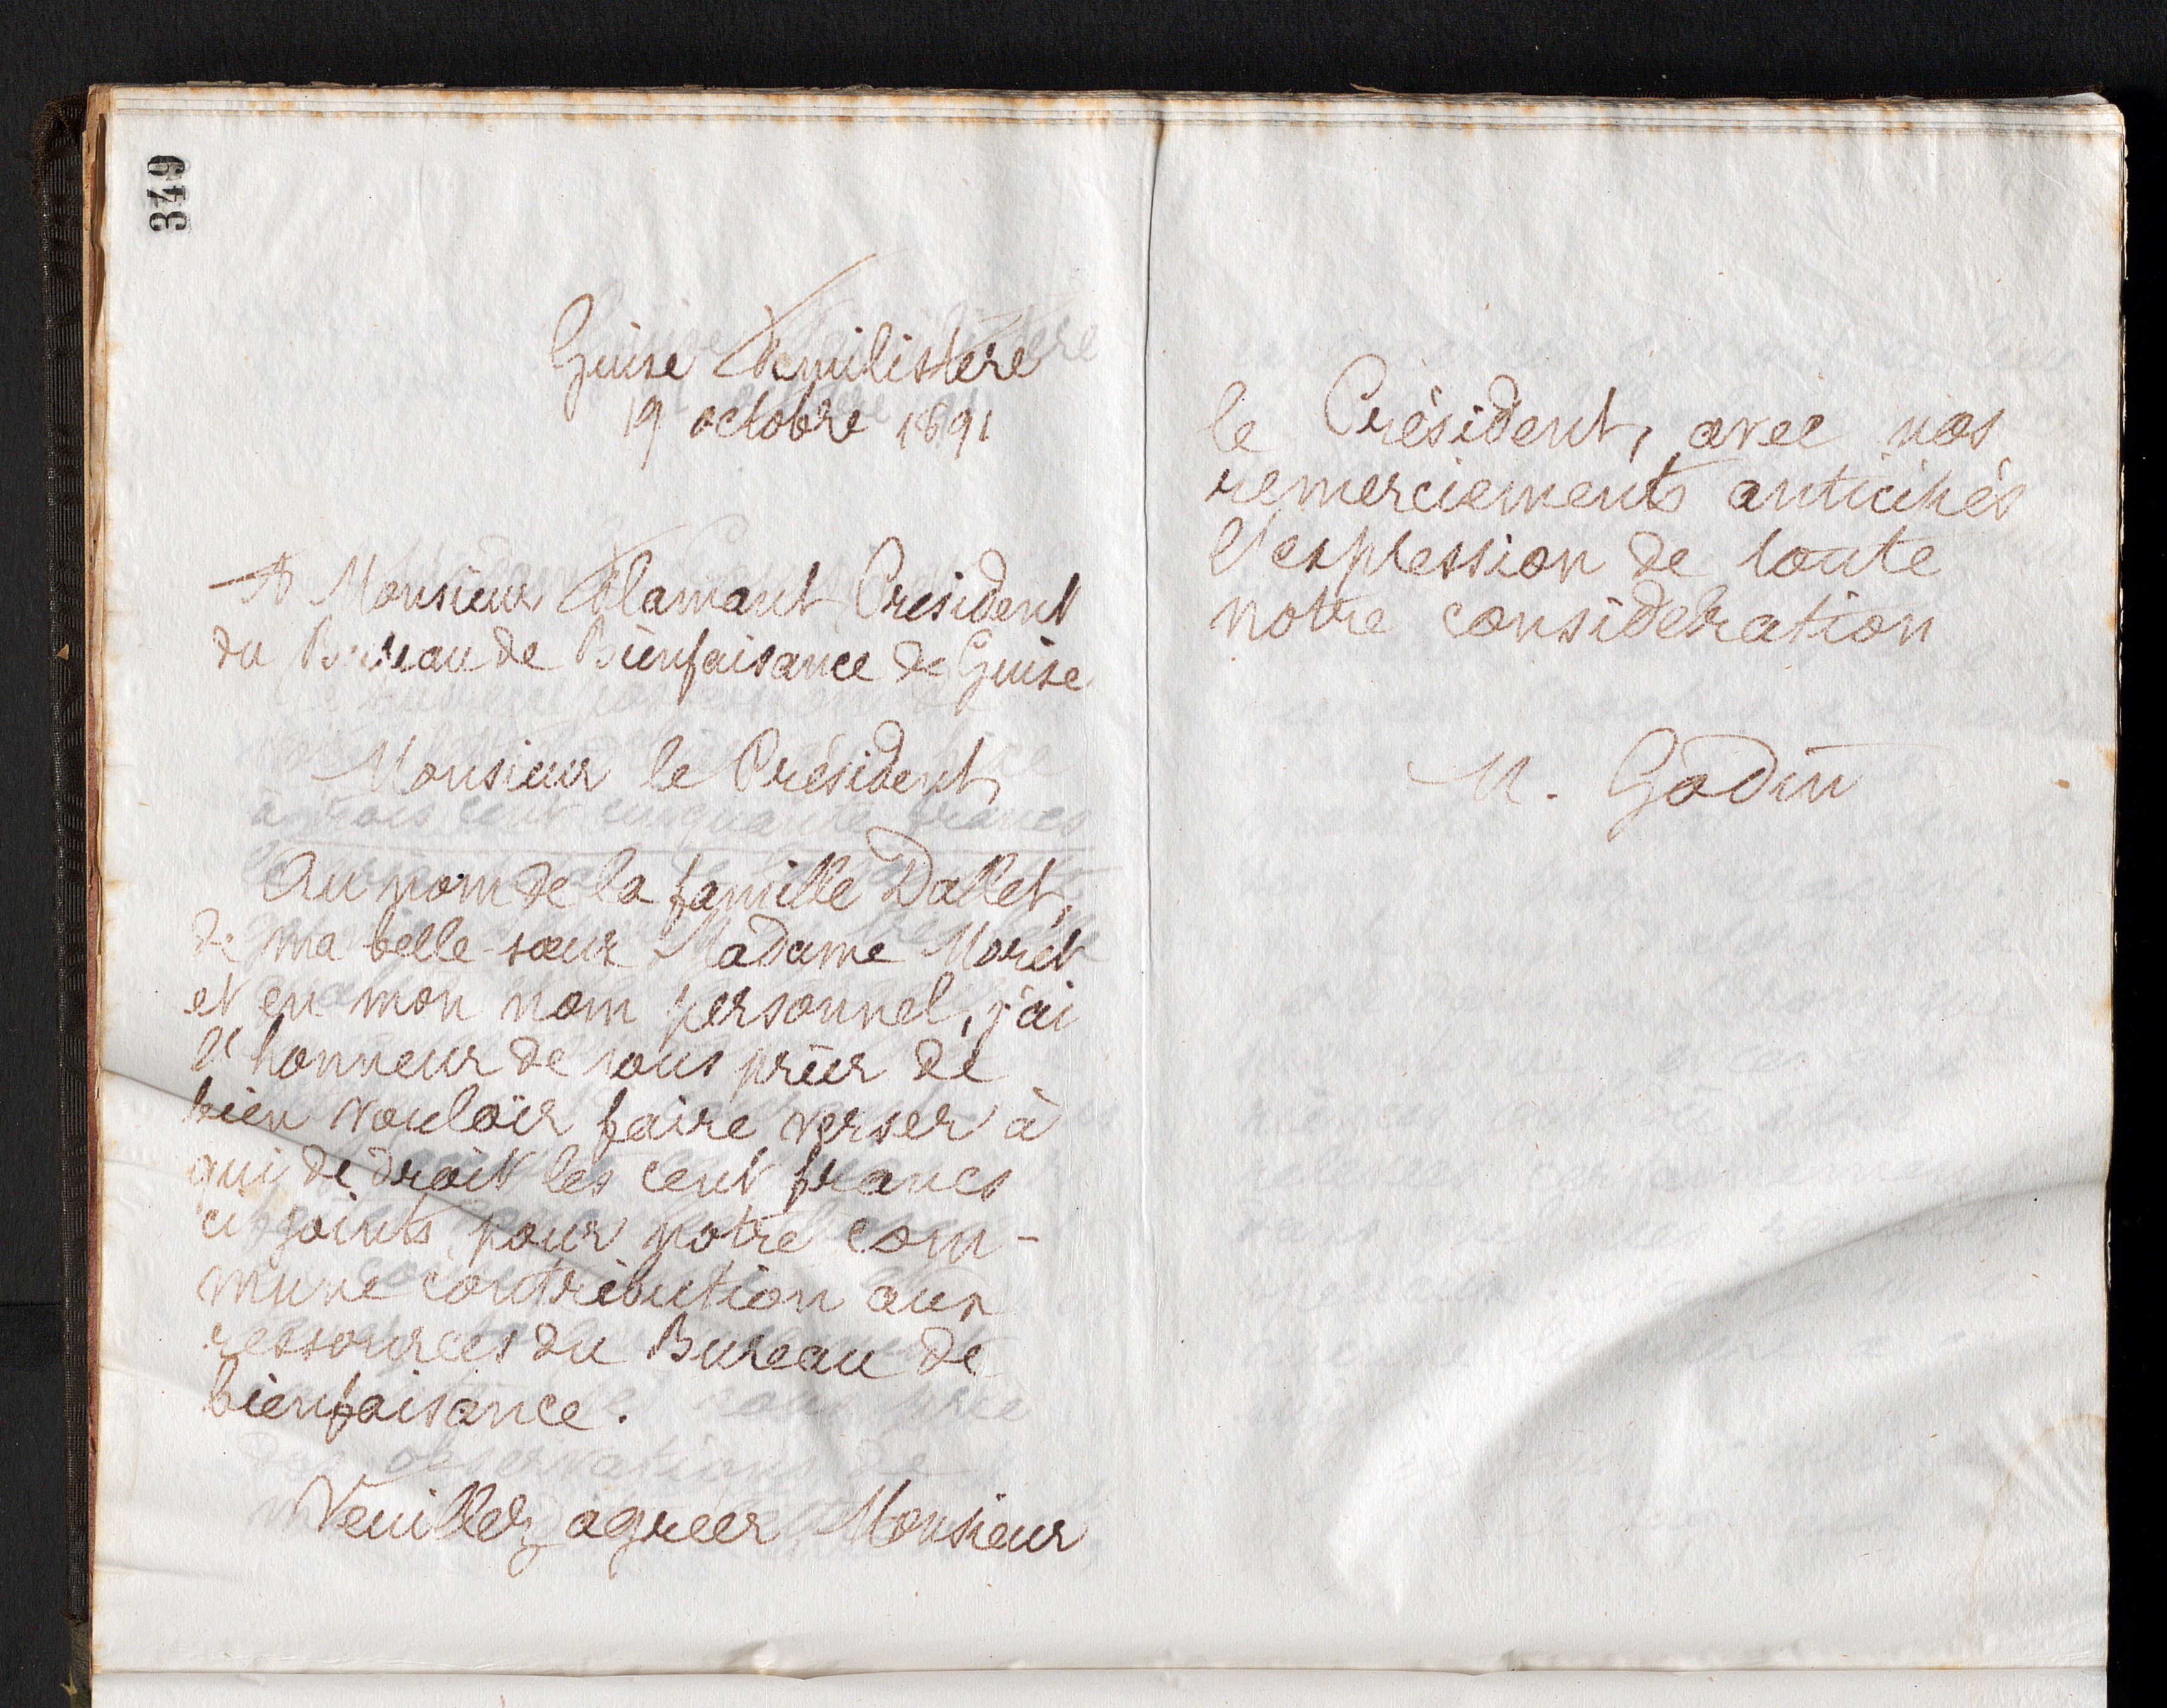 349
Guise Familistère
19 octobre 1891
A Monsieur Flamant Président
du Bureau de Bienfaisance de Guise
Monsieur le Président,
Au nom de la famille Dallet,
de ma belle-sœur Madame Moret
et en mon nom personnel, j'ai
l'honneur de vous prier de
bien vouloir faire verser à
qui de droit les cent francs
ci joints pour notre com-
mune contribution aux
ressources du Bureau de
bienfaisance.
Veuillez agréer Monsieur
le Président, avec nos
remerciements anticipés
l'expression de toute
notre considération
M. Godin